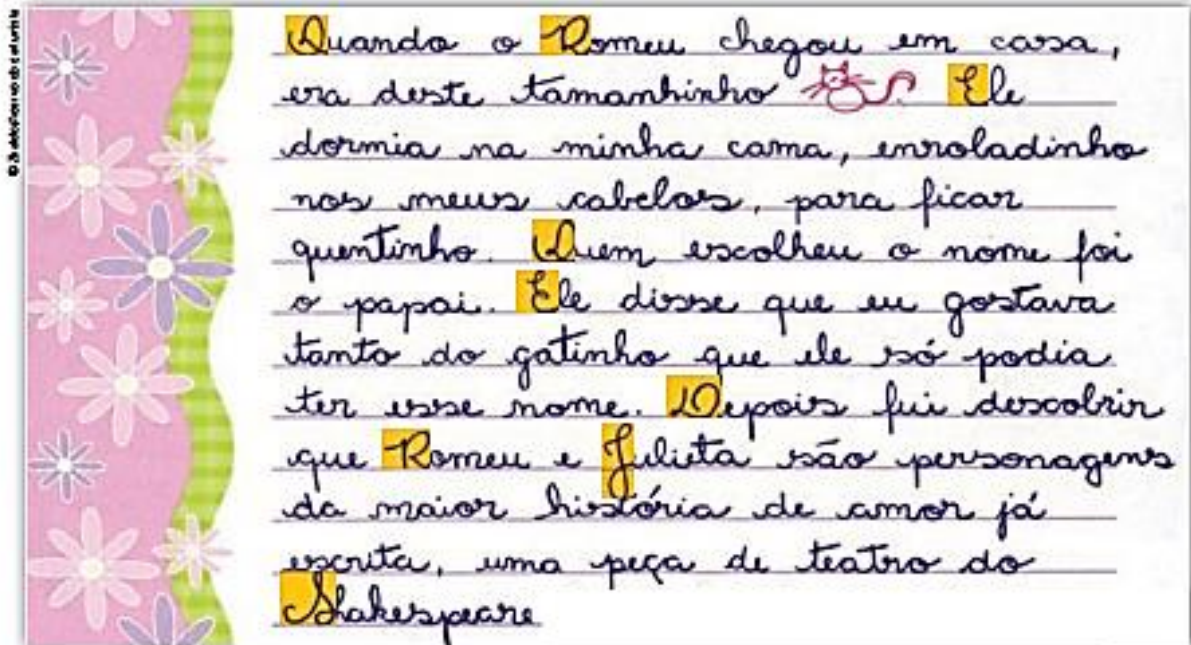 Quando o Romeu chegou em casa,
era deste tamanhinho. Ele
dormia na minha cama, enroladinho
nos meus cabelos, para ficar
quentinho. Quem escolheu o nome foi
o papai. Ele disse que eu gostava
tanto do gatinho que ele só podia
ter esse nome. Depois fui descobrir
que Romeu e Julieta são personagens
da maior história de amor já
escrita, uma peça de teatro do
Shakespeare